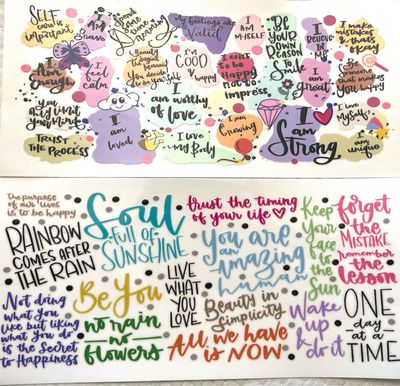 SELF
care is
important
I
Am
Brave
Spend
time
love
yourself
My feelings are
Valid
I
AM
MYSELF
BE
YOUR
OWN
REASON
To
Smile
I
BELIEVE
IN
ME
I
make
MISTAKES
& thats
okay
I
Am
Enough
I
feel
calm
Beauty
begins
the moment
You decide
to be yourself
I'm
GOOD
&
happy
I EXIST
to be
Happy
not to
impress
I
am
great
Be
Someone
that makes
you happy
You
only limit
your Mind
TRUST
THE PROCESS
I
am
loved
I
am worthy
of love
I love
my Body
I
am
Growing
I
am
Strong
I love
Myself
I
am
unique
The purpose
of our lives
is to be happy
RAINBOW
COMES AFTER
THE RAIN
Not doing
what you
like but liking
what you do
is the Secret
to Happiness
Soul
FULL OF
SUNSHINE
Be You
no rain
no
flowers
trust the timing
of your life
LIVE
WHAT
YOU
LOVE
You are
an
Amazing
human
Beauty in
Simplicity
All we have
is NOW
Keep
Your
Face to
the
Sun
Wake
up &
do it
forget
the
MISTAKE
remember
the
lesson
ONE
day
at a
TIME